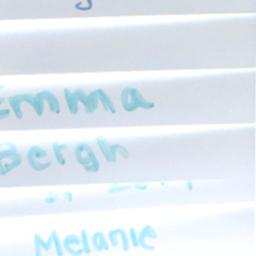 Emma
Bergh
Melanie